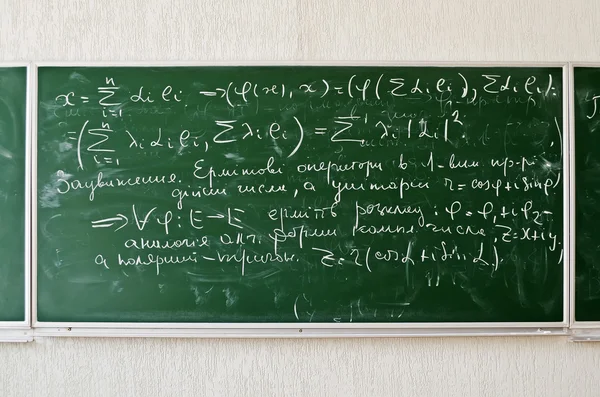 x = Σⁿᵢ₌₁ αᵢ eᵢ. ⇒ (φ(x), x) = (φ(Σ αᵢ eᵢ), Σ αᵢ eᵢ) =
= (Σⁿᵢ₌₁ λᵢ αᵢ eᵢ, Σ λᵢ eᵢ) = Σ λᵢ |αᵢ|².
Зауваження. Ермітові оператори в 1-вим. пр-рі
дійсні числа, а унітарні z = cosφ + i sinφ
⇒ ∀φ: E → E ерміть розклад: φ = φ₁ + iφ₂ -
аналогія алг. форми компл. числа, z = x + iy,
а полярний - z = r(cosα + i sinα).